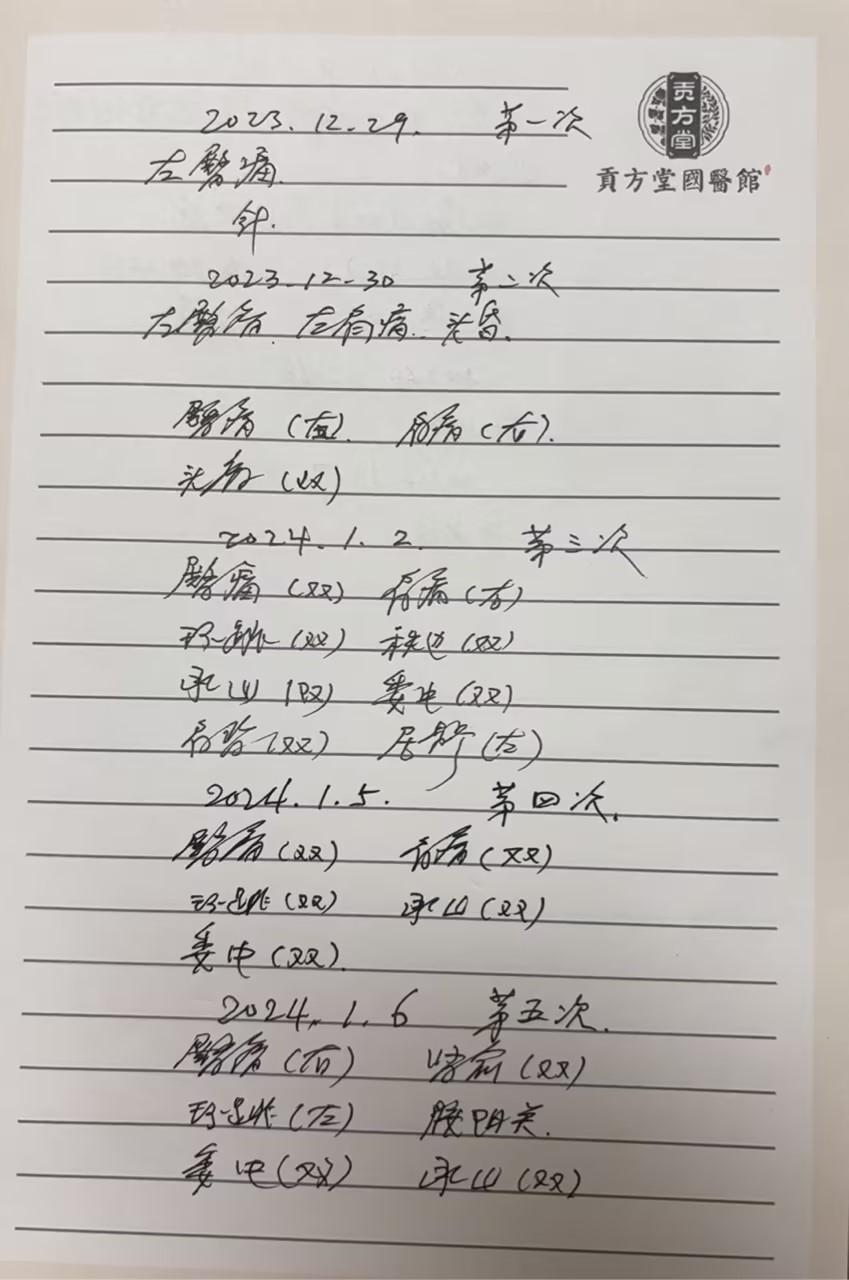 贡方堂
貢方堂國醫館
2023.12.29. 第一次
左臀痛
针.
2023.12-30 第二次
左臀痛. 左肩痛. 头昏.
臀痛(右). 肩痛(右).
头痛(双)
2024.1.2. 第三次
臀痛(双) 肩痛(右)
环跳(双) 秩边(双)
承山(双) 委中(双)
(双) 居髎(左)
2024.1.5. 第四次.
臀痛(双) 肩痛(双)
环跳(双) 承山(双)
委中(双).
2024.1.6 第五次.
臀痛(右) 肾俞(双)
环跳(左) 腰阳关.
委中(双) 承山(双)